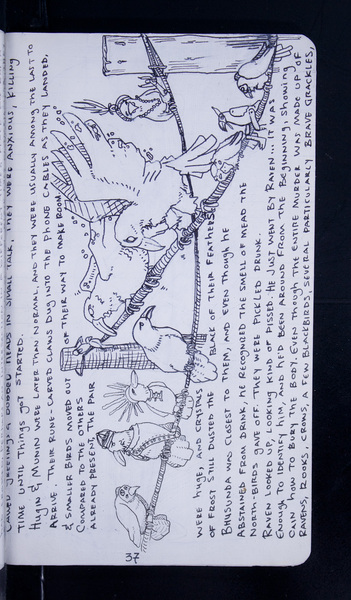 CALLED GREETINGS & BOBBED HEADS IN SMALL TALK, THEY WERE ANXIOUS, FILLING
TIME UNTIL THINGS GOT STARTED.
HUGIN & MUNIN WERE LATER THAN NORMAL, AND THEY WERE USUALLY AMONG THE LAST TO
ARRIVE. THEIR RUNE-CARVED CLAWS DUG INTO THE PHONE CABLES AS THEY LANDED,
& SMALLER BIRDS MOVED OUT OF THEIR WAY TO MAKE ROOM
COMPARED TO THE OTHERS
ALREADY PRESENT, THE PAIR
WERE HUGE, AND CRYSTALS
OF FROST STILL DUSTED THE BLACK OF THEIR FEATHERS
BHUSUNDA WAS CLOSEST TO THEM, AND EVEN THOUGH HE
ABSTAINED FROM DRINK, HE RECOGNIZED THE SMELL OF MEAD THE
NORTH-BIRDS GAVE OFF. THEY WERE PICKLED DRUNK.
RAVEN LOOKED UP, LOOKING KIND OF PISSED. HE JUST WENT BY RAVEN... IT WAS
ENOUGH TO IDENTIFY HIM, AND HE'D BEEN AROUND FROM THE BEGINNING, SHOWING
CAIN HOW TO BURY THE BODY. EVEN THOUGH THE ENTIRE MURDER WAS MADE UP OF
RAVENS, ROOKS, CROWS, A FEW BLACKBIRDS, SEVERAL PARTICULARLY BRAVE GRACKLES,
37